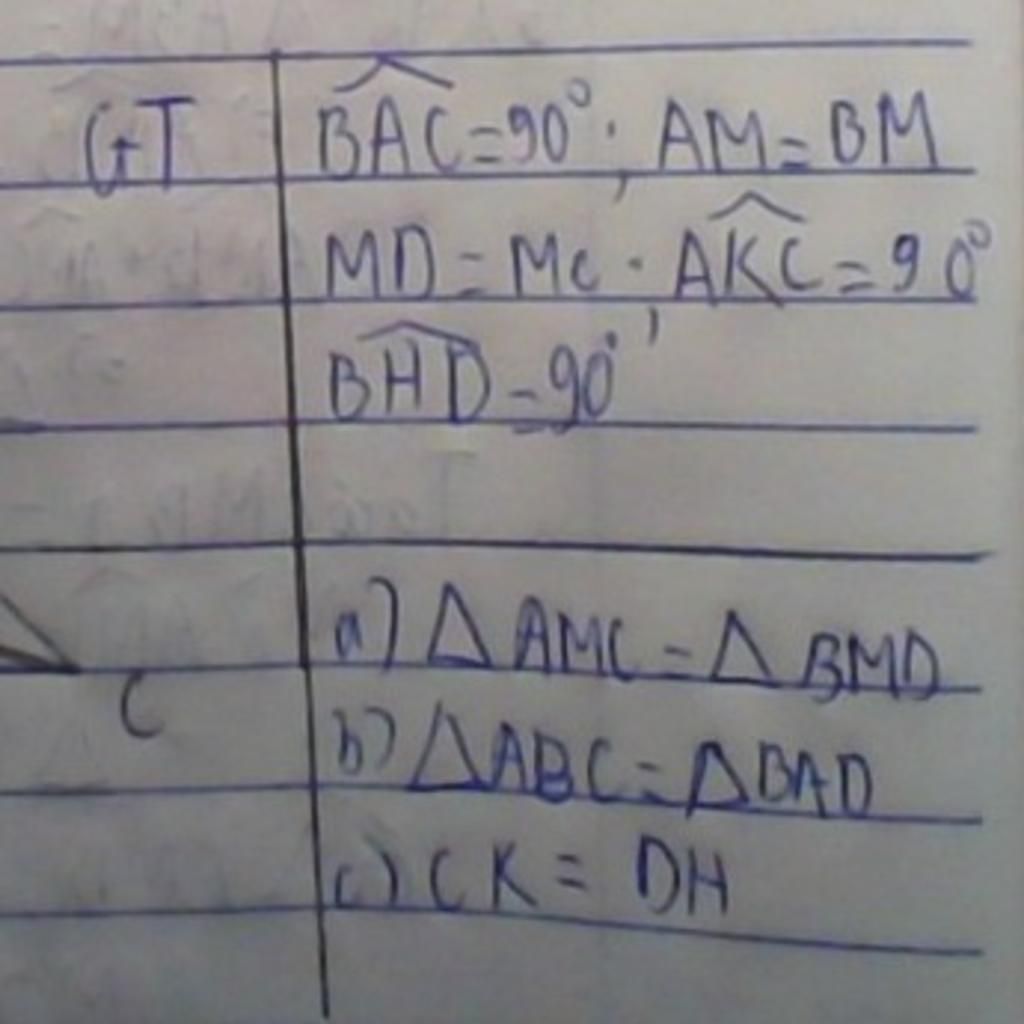 GT BAC = 90°; AM = BM
MD = MC; AKC = 90°;
BHD = 90°
a) Δ AMC = Δ BMD
C
b) ΔABC = ΔBAD
c) CK = DH